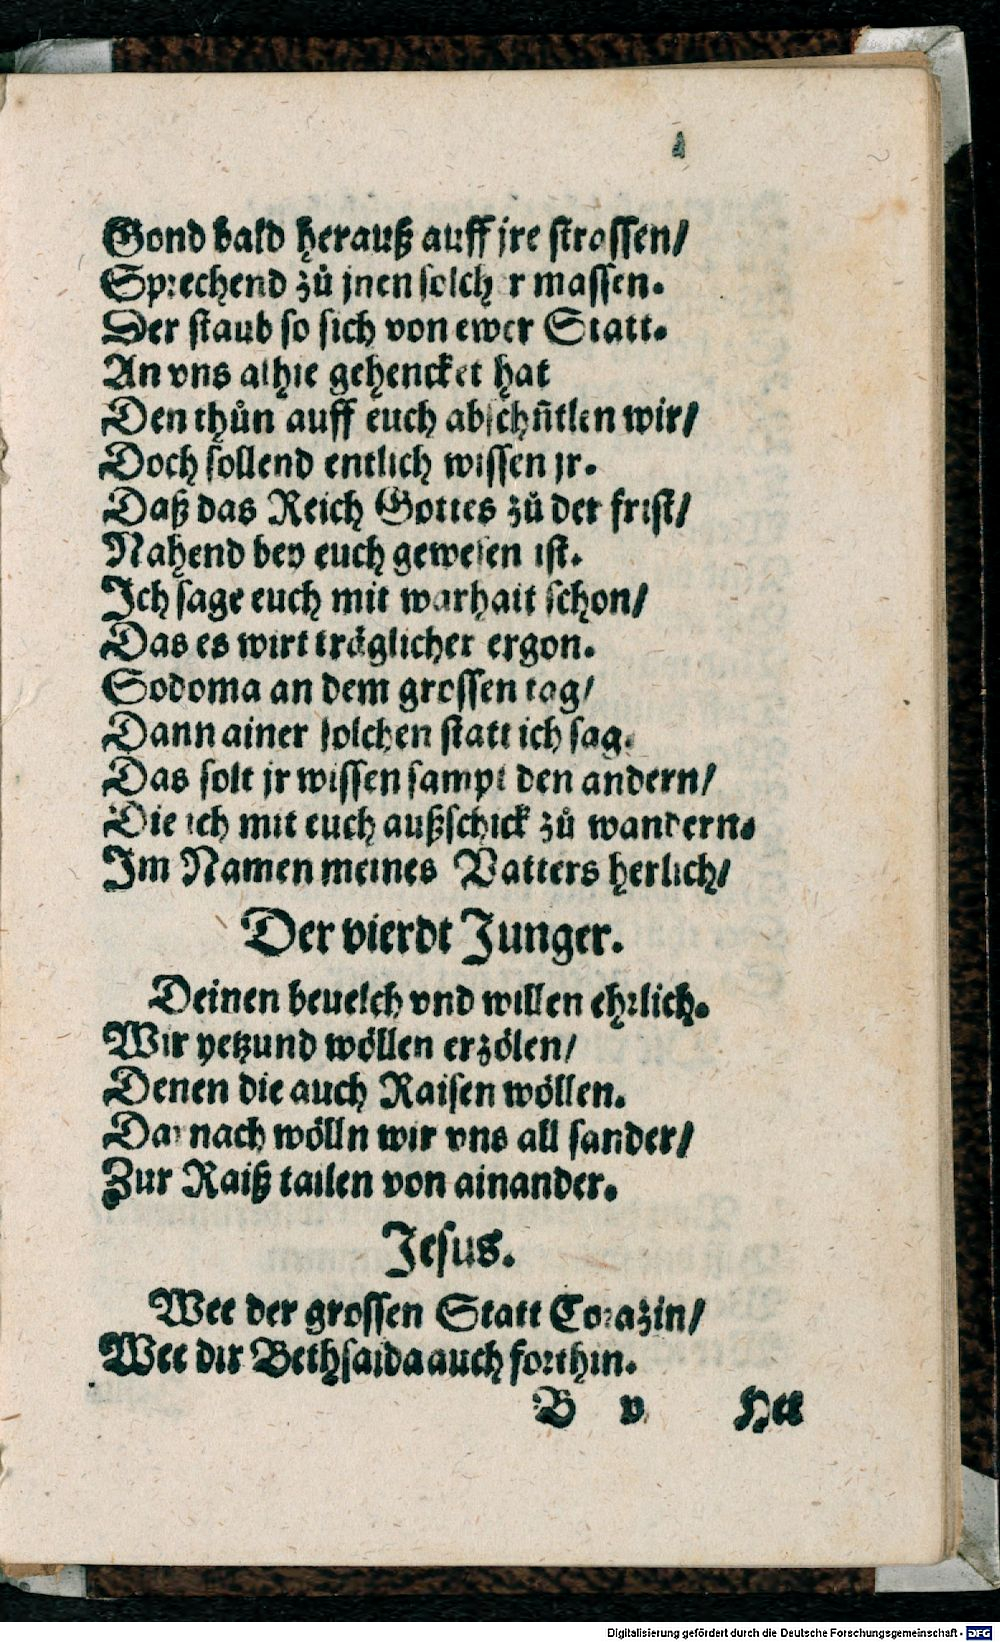 Gond bald herauß auff jre strossen/
Sprechend zů jnen solcher massen.
Der staub so sich von ewer Statt.
An vns alhie gehencket hat
Den thůn auff euch abschütlen wir/
Doch sollend entlich wissen jr.
Daß das Reich Gottes zů der frist/
Nahend bey euch gewesen ist.
Ich sage euch mit warhait schon/
Das es wirt träglicher ergon.
Sodoma an dem grossen tag/
Dann ainer solchen statt ich sag.
Das solt jr wissen sampt den andern/
Die ich mit euch außschick zů wandern.
Im Namen meines Vatters herlich/
Der vierdt Junger.
Deinen beuelch vnd willen ehrlich.
Wir yetzund wöllen erzölen/
Denen die auch Raisen wöllen.
Darnach wölln wir vns all sander/
Zur Raiß tailen von ainander.
Jesus.
Wee der grossen Statt Corazin/
Wee dir Bethsaida auch forthin.
B v Het
Digitalisierung gefördert durch die Deutsche Forschungsgemeinschaft - DFG